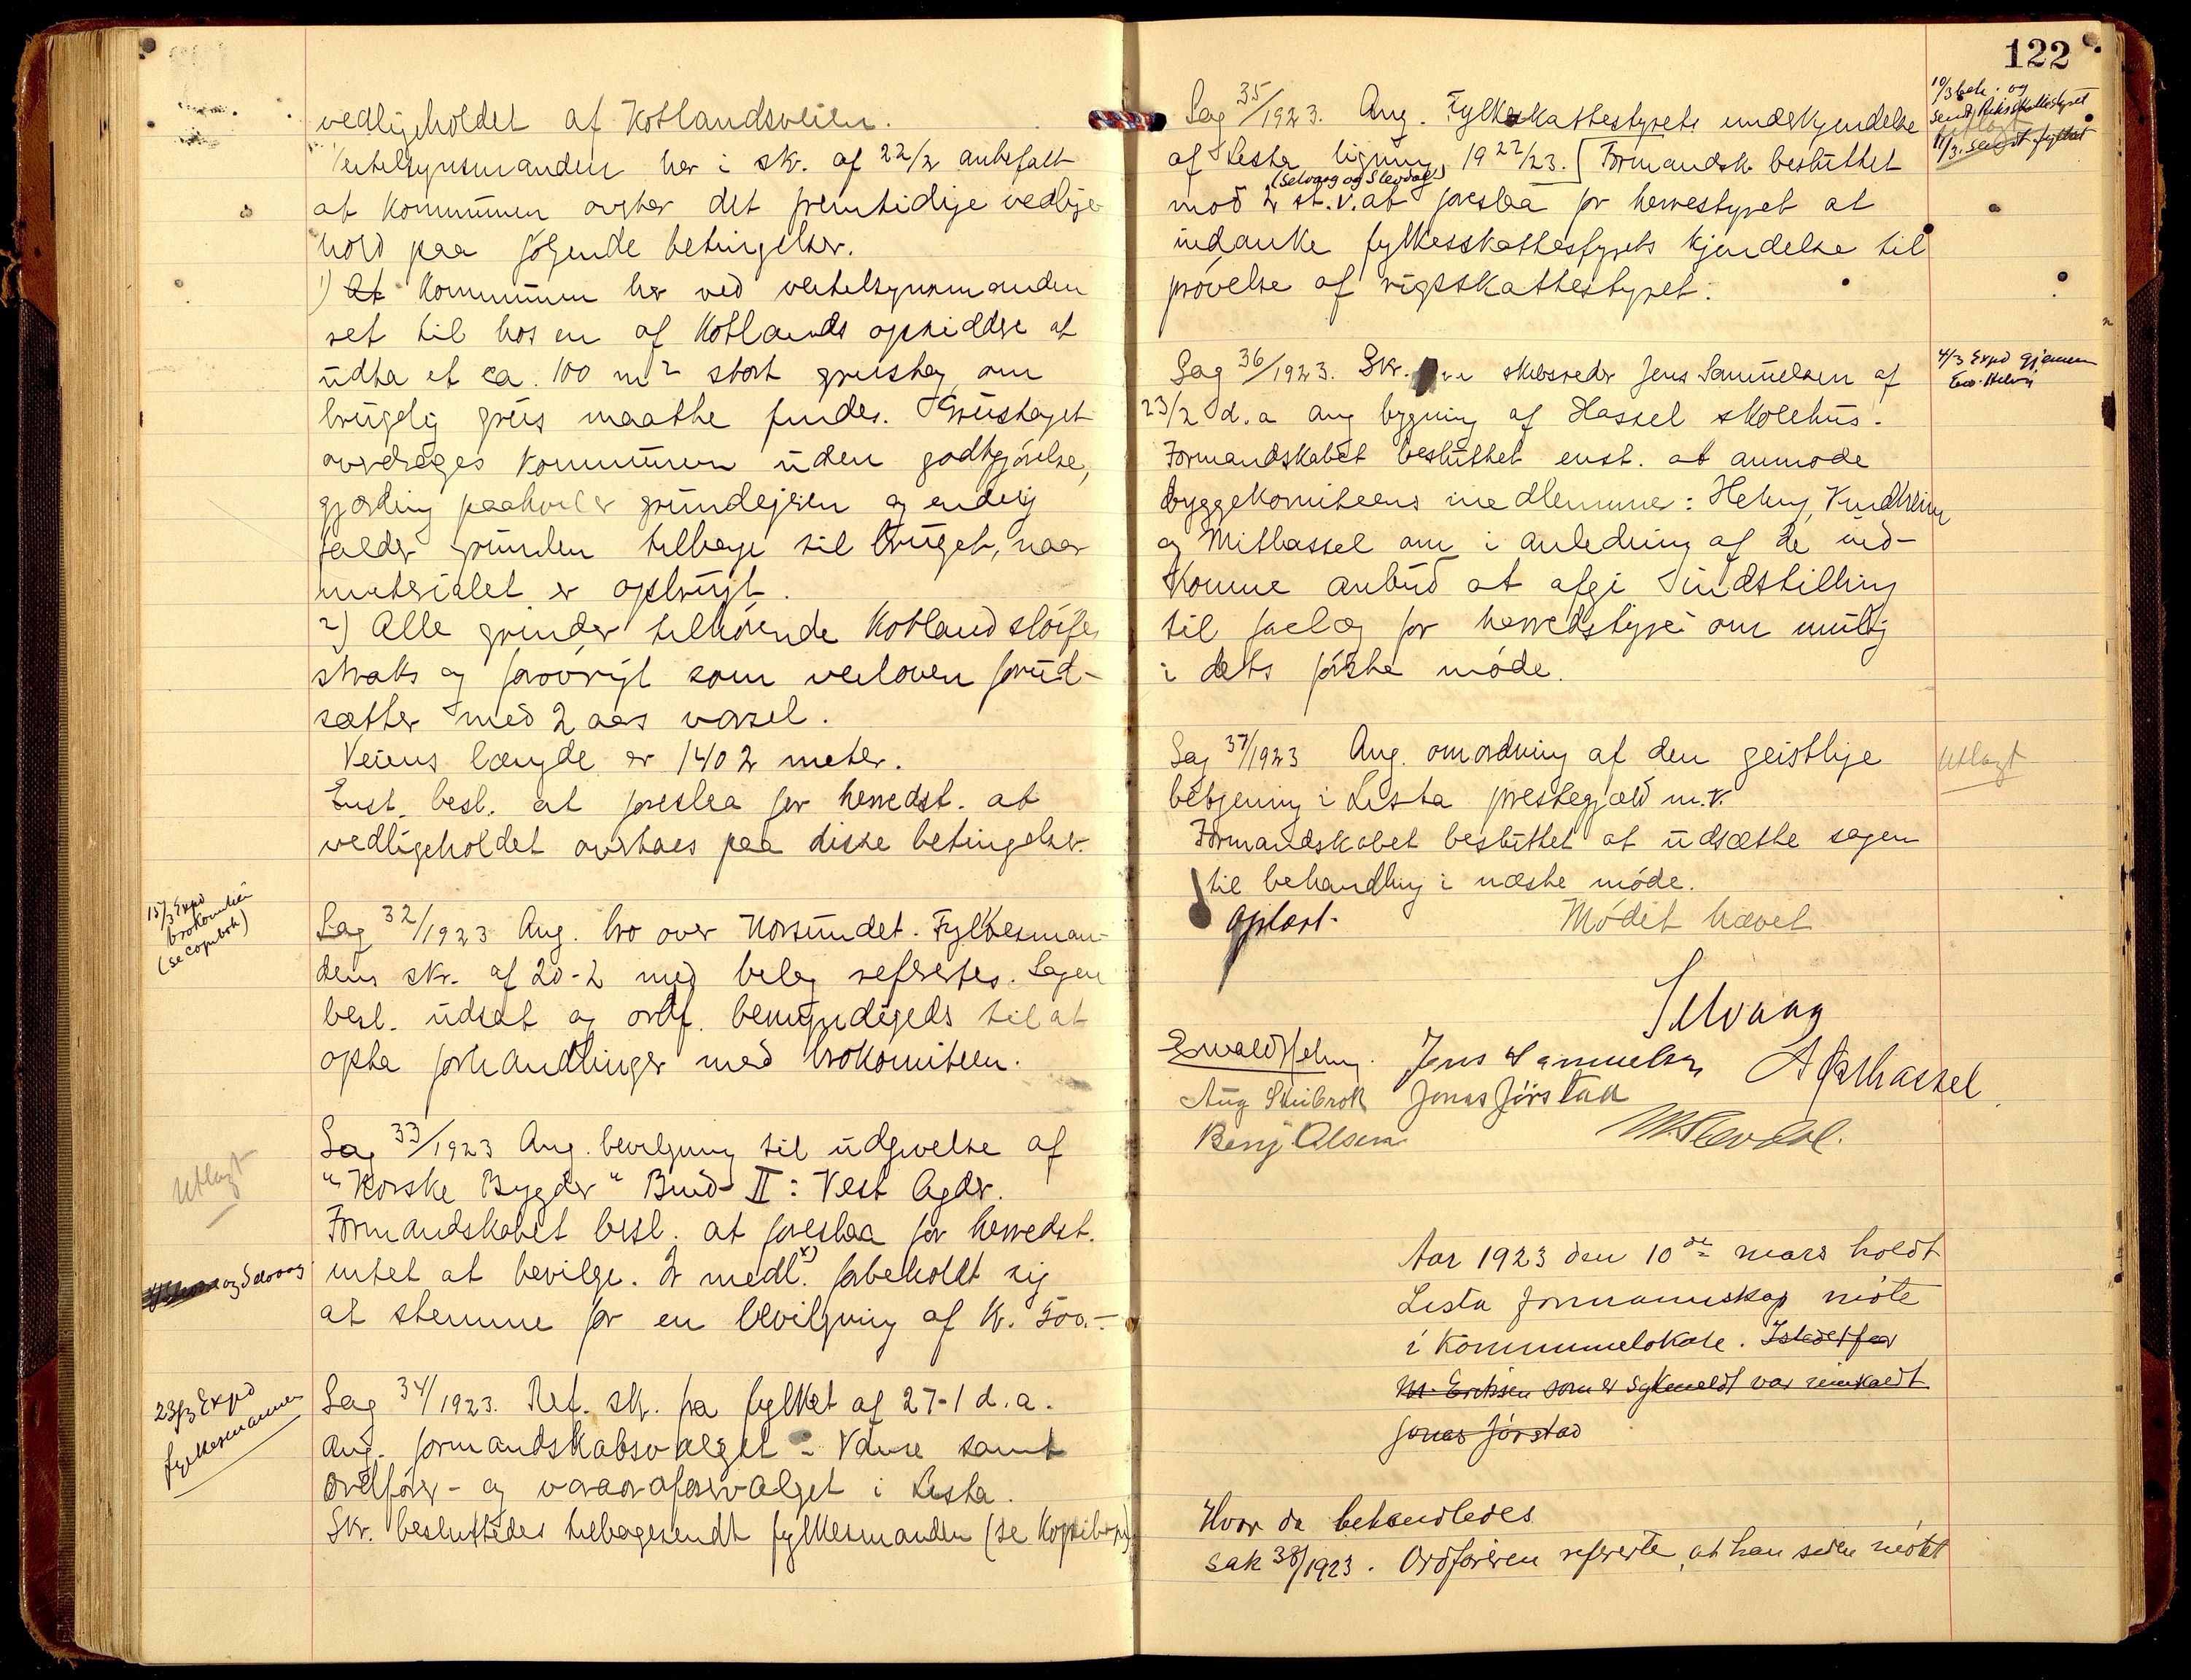 vedligeholdet af Kotlandsveien.
har i skr. af 22/2 anbefalt
at kommunen overtar det fremtidige vedlige-
hold paa følgende betingelser.
1) At kommunen har ved
ret til hos en af Kotlands opsiddere at
udta et ca. 100 m2 stort grustag, om
brugelig grus maatte findes. Grustaget
overdrages kommunen uden godtgjørelse,
gjærding paahviler grundejeren og endelig
falder grunden tilbage til bruget, naar
materialet er opbrugt.
2) Alle grinder tilhørende Kotland sløifes
straks og forøvrigt som veiloven forud-
sætter med 2 aars varsel.
Veiens længde er 1402 meter.
Enst. besl. at foreslaa for herredst. at
vedligeholdet overtaes paa disse betingelser.
15/3 Expd
brokomiteen
(se copibok)
Sag 32/1923 Ang. bro over Korsundet. Fylkesman-
dens skr. af 20-2 med bilag refertes. Sagen
besl. udsat og ordf. bemyndigeds til at
opta forhandlinger med brokomiteen.
Utlagt
Sag 33/1923 Ang. bevilgning til udgivelse af
"Norske Bygder" Bind II: Vest Agder.
Formandskabet besl. at foreslaa for herredst.
intet at bevilge. 2 medl. x) forbeholdt sig
og Selvaag
at stemme for en bevilgning af kr. 500.-
23/3 Expd
fylkesmannen
Sag 34/1923. Ref. skr. fra fylket af 27-1 d.a.
Ang. formandskabsvalget i Vanse samt
ordfører- og varaordførervalget i Lista.
Skr. besluttedes tilbagesendt fylkesmanden (se Kopibogen)
122
10/3 bek. og
sendt Riksskattestyret
utlagt
11/3. sendt fylket
Sag 35/1923. Ang. Fylkesskattestyrets underkjendelse
af Lista ligning 1922/23. Formandsk. besluttet
(Selvaag og Slevdal)
mod 2 st. v. at foreslaa for herrestyret at
indanke fylkesskattestyrets kjendelse til
prøvelse af rigsskattestyret.
4/3 Expd gjennem
Ew. Helvig
Sag 36/1923. Skr. fra skibsreder Jens Samuelsen af
23/2 d.a ang bygning af Hassel skolehus.
Formandskabet besluttet enst. at anmode
byggekomiteens medlemmer: Helvig, Vindheim
og Mithassel om i anledning af de ind-
komne anbud at afgi indstilling
til forelæg for herredstyret om mulig
i dets første møde.
Utlagt
Sag 37/1923 Ang. omordning af den geistlige
betjening i Lista prestegjæld m.v.
Formandskabet besluttet at udsætte sagen
til behandling i næste møde.
Oplæst. Mødet hævet
Selvaag
Ewald Helvig. Jens Samuelsen A Østhassel
Aug Skeibrok Jonas Jørstad
Benj. Olsen M. Slevdal.
Aar 1923 den 10de mars holdt
Lista formannskap møte
i Kommunelokale. Istedetfor
M. Eriksen som er sykmeldt var innkaldt
Jonas Jørstad
Hvor da behandledes
Sak 38/1923. Ordføreren refererte, at han siden møtet